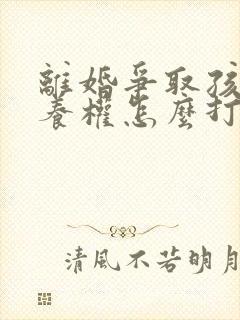 離婚爭取孩
養權怎麼打
清風不若明月